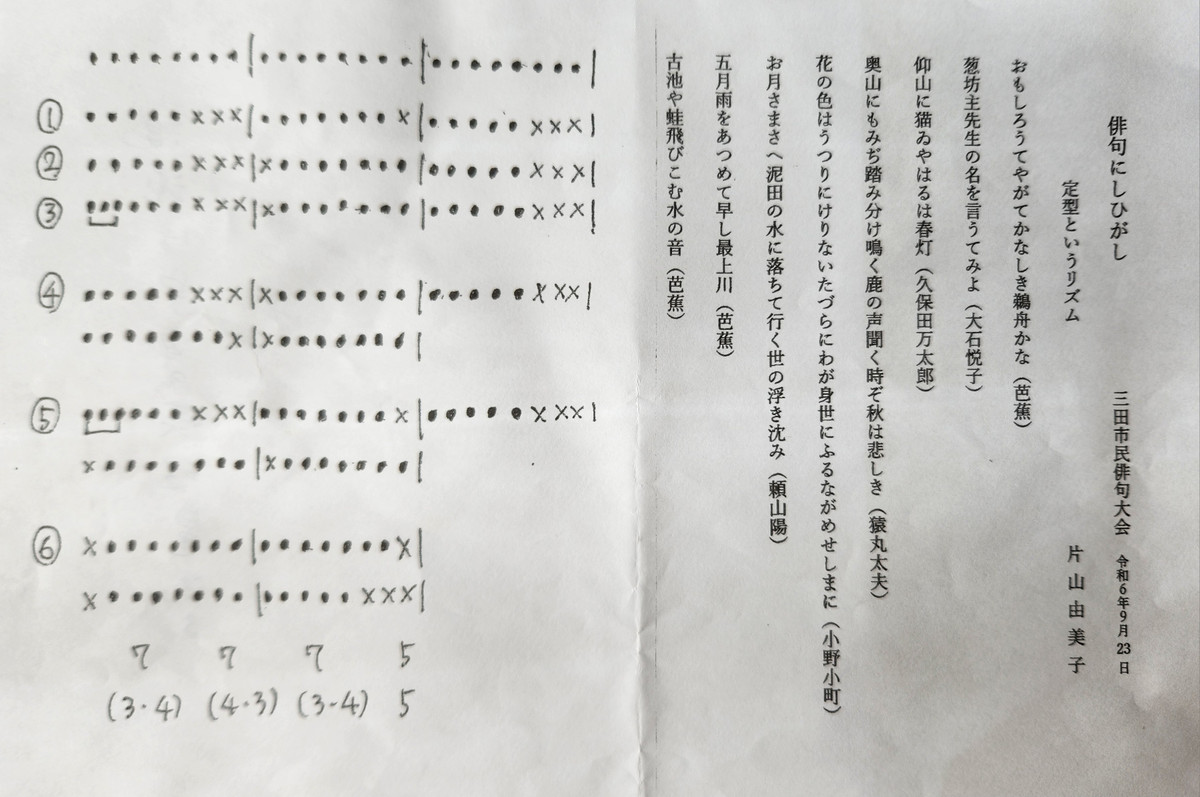 俳句にしひがし　三田市民俳句大会　令和6年9月23日
定型というリズム　片山由美子
おもしろうてやがてかなしき鵜舟かな（芭蕉）
葱坊主先生の名を言うてみよ（大石悦子）
仰山に猫ゐやはるは春灯（久保田万太郎）
奥山にもみぢ踏み分け鳴く鹿の声聞く時ぞ秋は悲しき（猿丸太夫）
花の色はうつりにけりないたづらにわが身世にふるながめせしまに（小野小町）
お月さまさへ泥田の水に落ちて行く世の浮き沈み（頼山陽）
五月雨をあつめて早し最上川（芭蕉）
古池や蛙飛びこむ水の音（芭蕉）
••••••••|••••••••|••••••••|
① •••••×××|•••••••×|•••••×××|
② •••••×××|×•••••••|•••••×××|
③ ••••••×××|×•••••••|•••••×××|
④ •••••×××|×•••••••|•••••×××|
•••••••×|×•••••••|
⑤ ••••••×××|•••••••×|•••••×××|
×•••••••|×•••••••|
⑥ ×•••••••|•••••••×|
×•••••••|•••••×××|
7 7 7 5
(3・4) (4・3) (3・4) 5